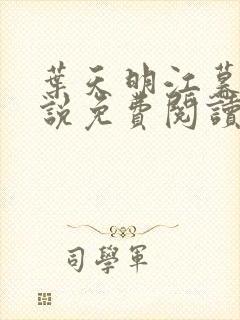 葉天明江慕
說免費閱讀
司學軍